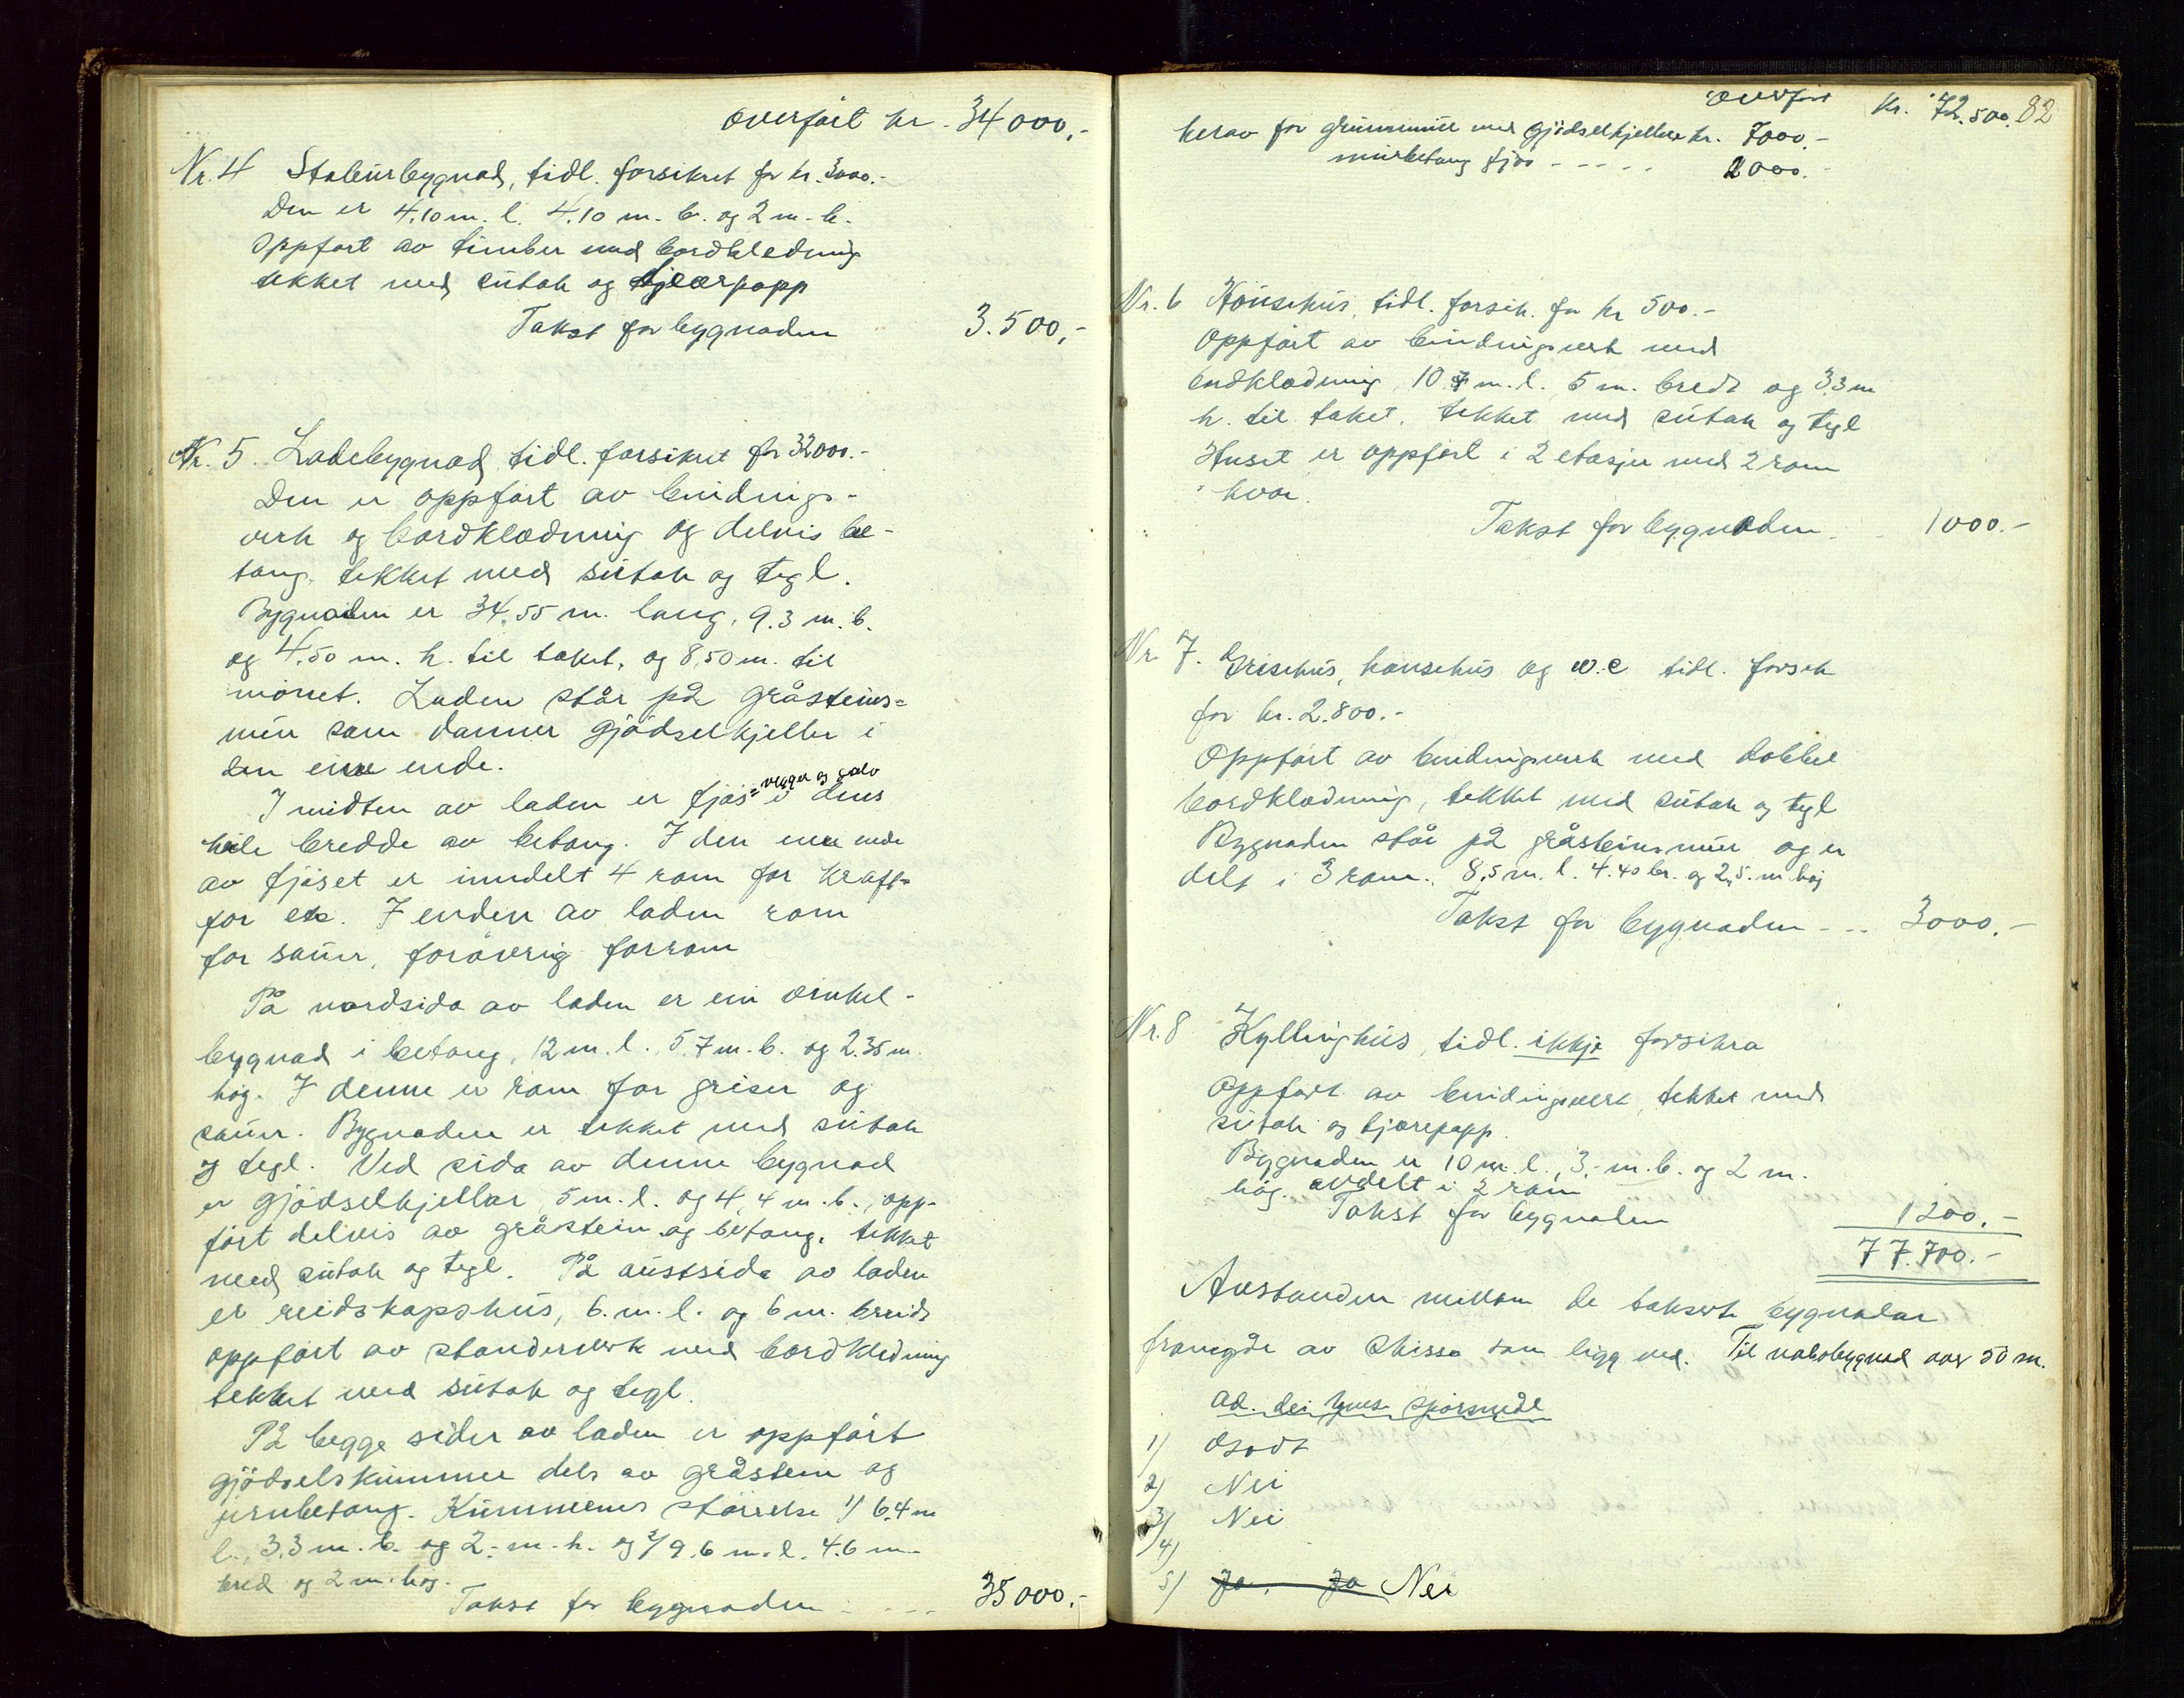 overført kr. 34000,-
Nr. 4 Staburbygnad, tidl. forsikret for kr. 3000.-
Den er 4,10 m. l. 4,10 m. b. og 2 m. h.
Oppført av timber med bordkledning
tekket med sutak og tjærpapp
Takst for bygnaden 3.500,-
Nr. 5. Ladebygnad tidl. forsikret for 32000.-
Den er oppført av bindings-
verk og bordklædning og delvis be-
tong. tekket med sutak og tegl.
Bygnaden er 34,55 m. lang, 9.3 m. b.
og 4,50 m. h. til taket, og 8,50 m. til
mønet. Laden står på gråsteins=
mur som danner gjødselkjeller i
den ene ende.
I midten av laden er fjøs = vegger og golv i dens
heile bredde av betong. I den ene ende
av fjøset er inndelt 4 rom for kraft-
for etc. I enden av laden rom
for sauer, forøvrig forrom
På nordsida av laden er ein vinkel-
bygnad i betong, 12 m. l., 5.7 m. b. og 2.35 m.
høg. I denne er rom for griser og
sauer. Bygnaden er tekket med sutak
og tegl. Ved sida av denne bygnad
er gjødselkjellar, 5 m. l. og 4,4 m. b., opp-
ført delvis av gråstein og betong, tekket
med sutak og tegl. På austsida av laden
er reidskapshus, 6. m. l. og 6 m. breidt
oppført av standerverk med bordkledning
tekket med sutak og tegl.
På begge sider av laden er oppført
gjødselskummer dels av gråstein og
jernbetong. Kummenes størrelse 1/ 6.4 m
l., 3.3 m. b. og 2.- m. h. og 2/ 9.6 m. l. 4.6 m.
bred og 2 m. høg.
Takst for bygnaden - - - - 35000.-
overført kr. 72.500. 82
herav for grunnmur med gjødselkjeller kr. 7000.-
murbetong fjøs - - - - - 2000.-
Nr. 6 Hønsehus, tidl. forsik. for kr 500.-
Oppført av bindingsverk med
bordklædning, 10.7 m. l. 5 m. bredt og 3,3 m
h. til taket, tekket med sutak og tegl
Huset er oppført i 2 etasjer med 2 rom
i hver.
Takst for bygnaden. 1000.-
Nr. 7. Grisehus, hønsehus og w.c tidl. forsik
for kr. 2.800.-
Oppført av bindingsverk med dobbel
bordklædning, tekket med sutak og tegl
Bygnaden står på gråsteinsmur og er
delt i 3 rom. 8,5 m. l. 4.40 br. og 2,5. m høg
Takst for bygnaden - - - 3000.-
Nr. 8 Kyllinghus, tidl. ikkje forsikra
Oppført av bindingsverk, tekket med
sutak og tjærepapp.
Bygnaden er 10 m. l., 3.- m. b. og 2 m.
høg. avdelt i 2 rom
Takst for bygnaden 1200.-
77.700.-
Avstanden mellom de takserte bygnadar
framgår av skisse som ligg ved. Til nabobygnad over 50 m.
ad. dei spørsmål
1/ Godt
2/ Nei
3/ Nei
4/
5/ Ja. Ja Nei